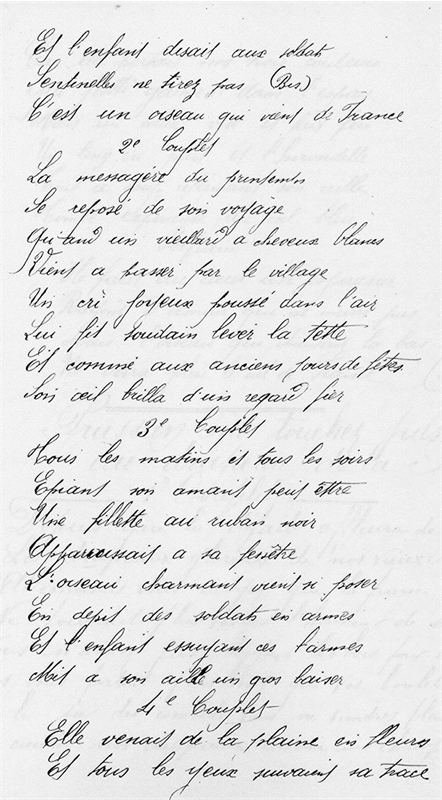 Et l'enfant disait aux soldats
Sentinelles ne tirez pas (Bis)
C'est un oiseau qui vient de France
2e Couplet
La messagère du printemps
Se reposé de son voyage
Quand un vieillard a cheveux blancs
Vient a passer par le village
Un cri joyeux poussé dans l'air
Lui fit soudain lever la tette
Et comme aux anciens jours de fêtes
Son œil brilla d'un regard fier
3e Couplet
Tous les matins et tous les soirs
Epiant son amant peut être
Une fillette au ruban noir
Apparaissait a sa fenêtre
L'oiseau charmant vient si poser
En depit des soldats en armes
Et l'enfant essuyant ces larmes
Mit a son aille un gros baiser
4e Couplet
Elle venait de la plaine en fleurs
Et tous les yeux suivaint sa trace